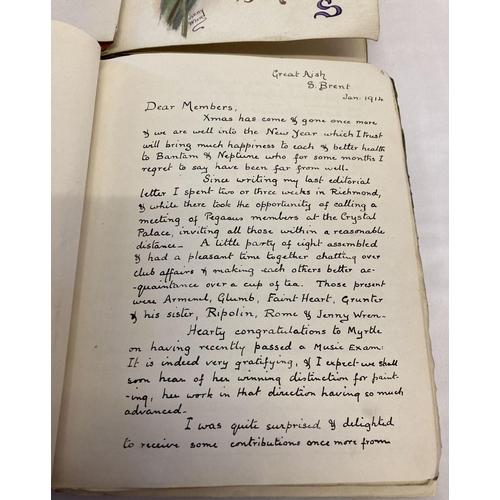 Jenny
Wren
S
Great Aish
S. Brent
Jan: 1914
Dear Members,
Xmas has come & gone once more
& we are well into the New Year which I trust
will bring much happiness to each & better health
to Bantam & Neptune who for some months I
regret to say have been far from well-
Since writing my last editorial
letter I spent two or three weeks in Richmond,
& while there took the opportunity of calling a
meeting of Pegasus members at the Crystal
Palace, inviting all those within a reasonable
distance- A little party of eight assembled
& had a pleasant time together chatting over
club affairs & making each others better ac-
quaintance over a cup of tea. Those present
were Armenel, Glumb, Faint Heart, Grunter
& his sister, Ripolin, Rome & Jenny Wren-
Hearty congratulations to Myrtle
on having recently passed a Music Exam:
It is indeed very gratifying, & I expect we shall
soon hear of her winning distinction for paint-
ing, her work in that direction having so much
advanced-
I was quite surprised & delighted
to receive some contributions once more from